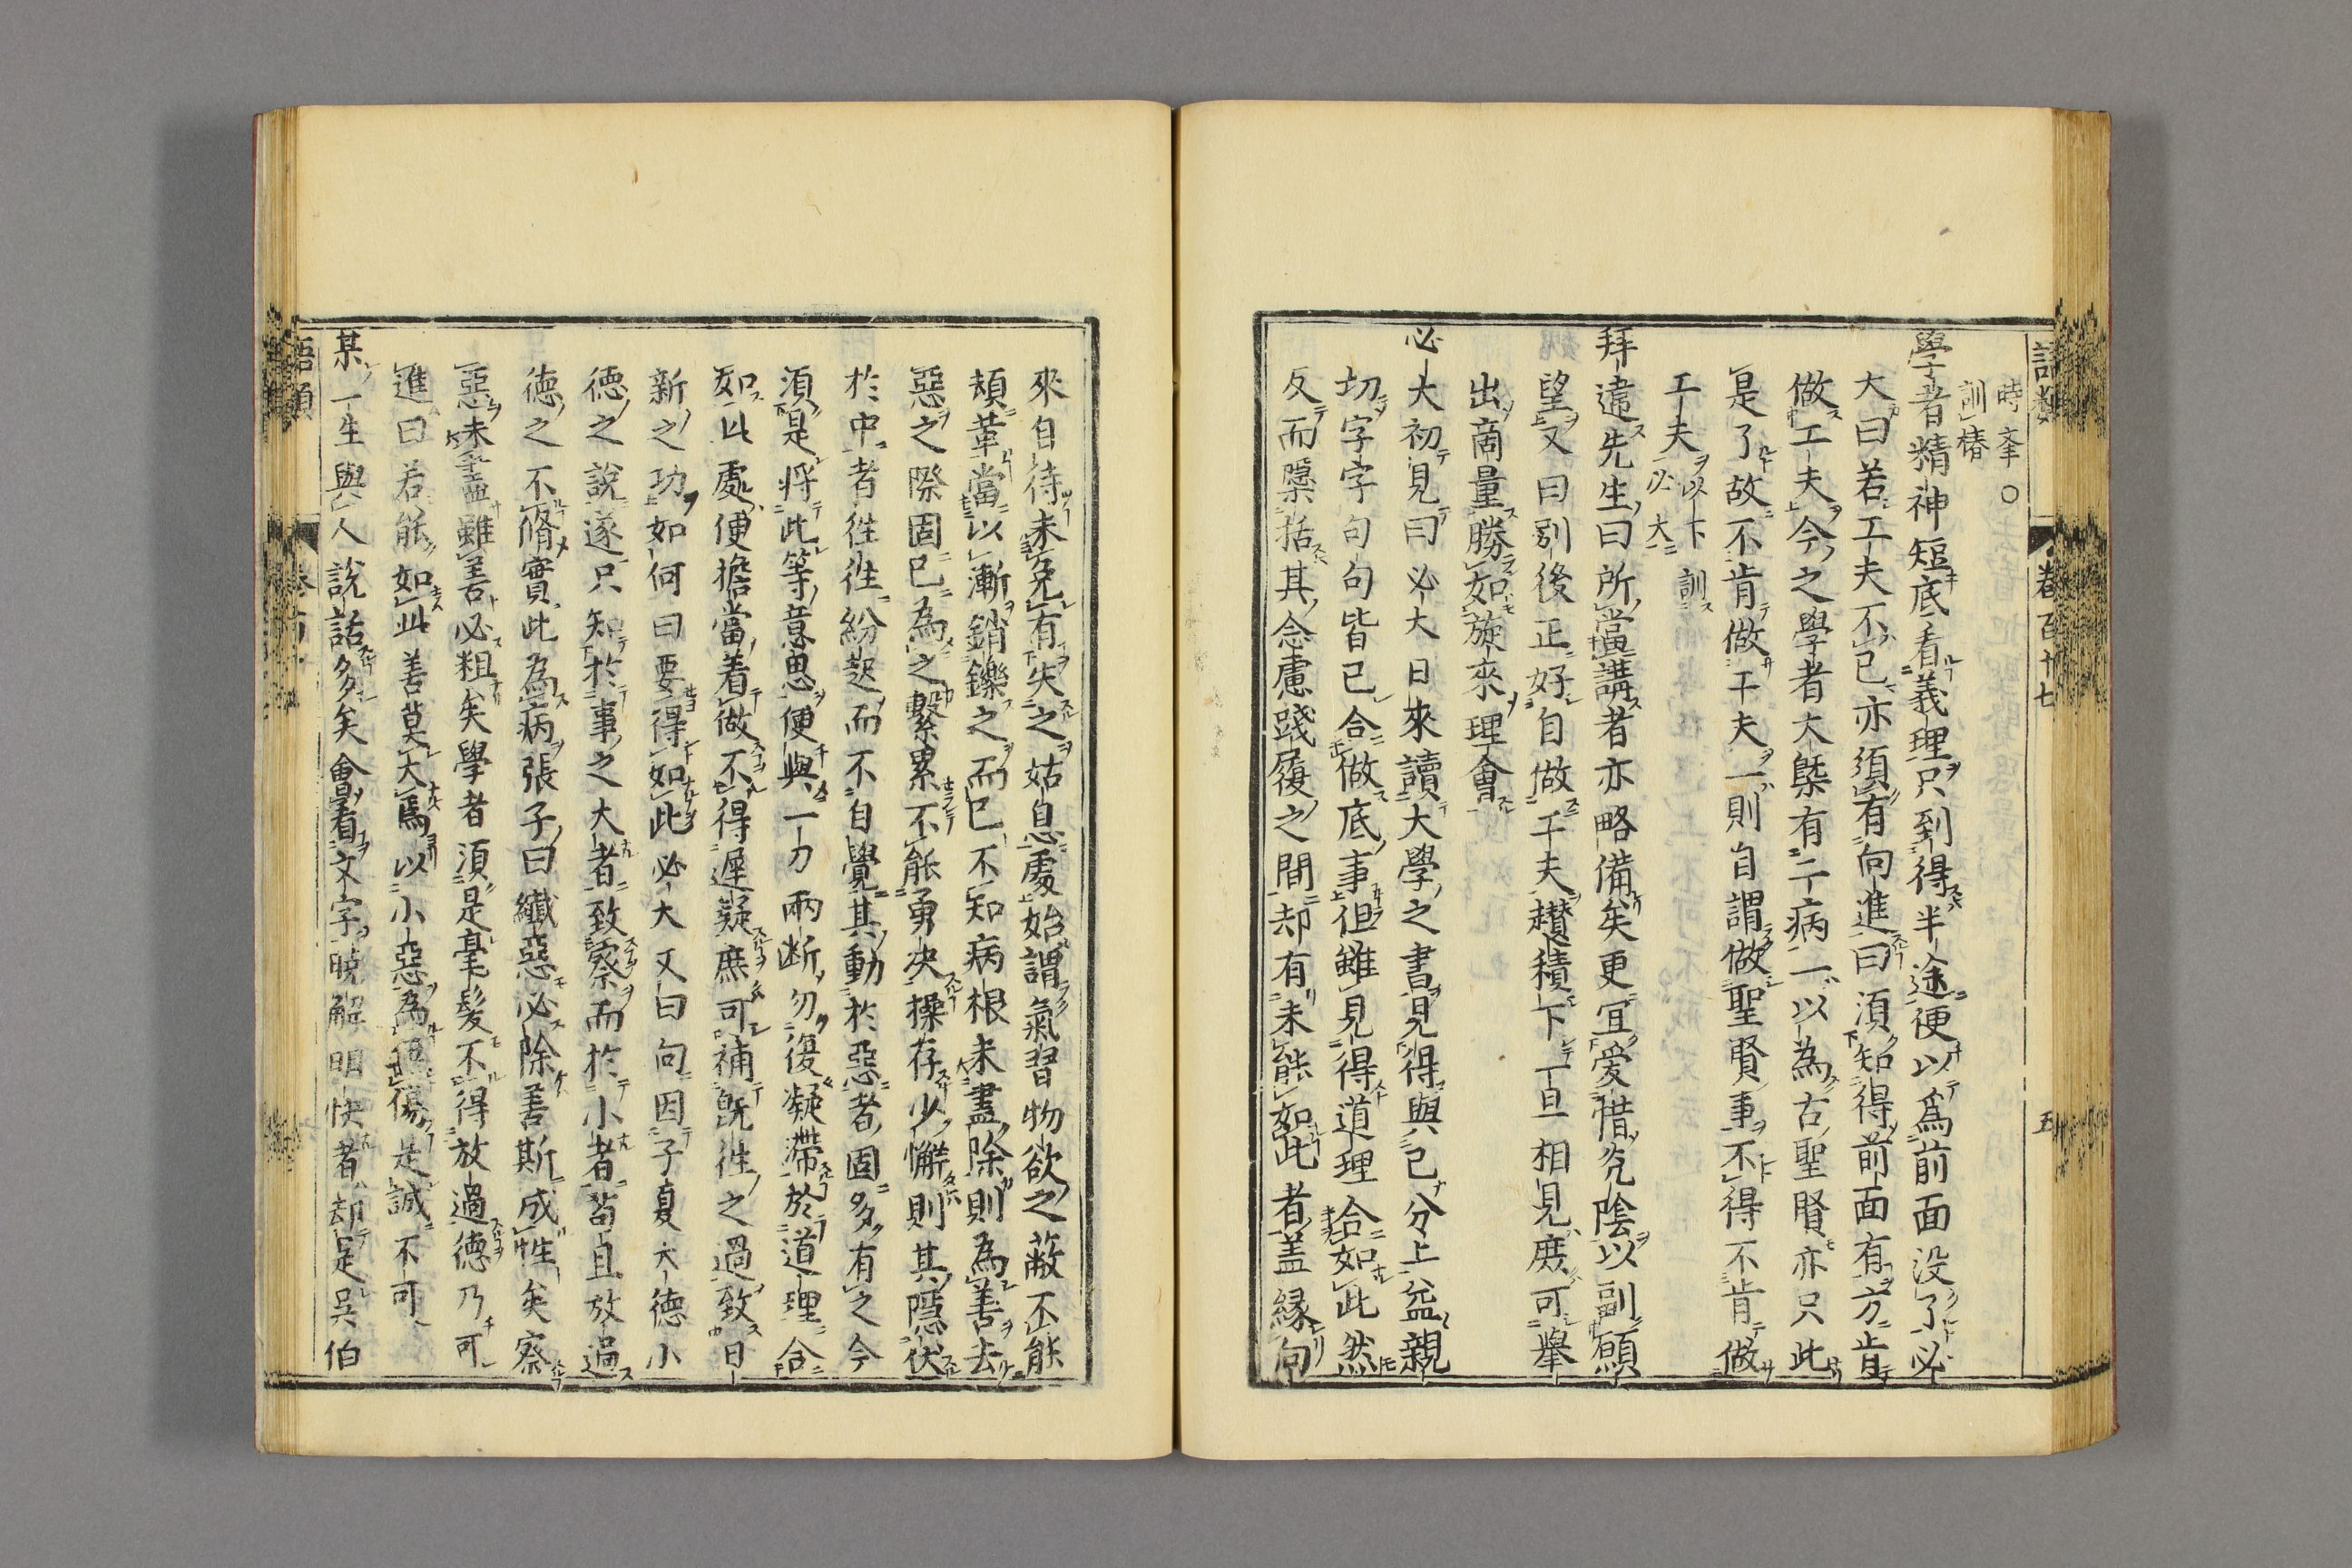 語類 卷百十七 五
時㪯○
訓椿
學者精神短底看義理只到得半途便以爲前面没了必
大曰若工夫不已亦須有向進曰須知得前面有方肯
做工夫今之學者大槩有二病一以為古聖賢亦只此
是了故不肯做工夫一則自謂做聖賢事不得不肯做
工夫以下訓
必大
拜違先生曰所當講者亦略備矣更宜愛惜光陰以副願
望又曰別後正好自做工夫趲積下一旦相見庶可舉
出商量勝如旋來理會
必大初見曰必大日來讀大學之書見得與己分上益親
切字字句句皆己合做底事但雖見得道理合如此然
反而隱括其念慮踐履之間却有未能如此者盖縁向
來自待未免有失之姑息處始謂氣習物欲之蔽不能
頓革當以漸銷鑠之而已不知病根未盡除則為善去
惡之際固已為之繫累不能勇决操存少懈則其隱伏
於中者徃徃紛起而不自覺其動於惡者固多有之今
須是將此等意思便與一刀兩断勿復凝滯於道理合
如此處便擔當着做不得遲疑庶可補旣徃之過致日
新之功如何曰要得如此必大又曰向因子夏大德小
德之說遂只知於事之大者致察而於小者苟且放過
德之不脩實此為病張子曰纎惡必除善斯成性矣察
惡未盡雖善必粗矣學者須是毫髪不得放過德乃可
進曰若能如此善莫大焉以小惡為無傷是誠不可
某一生與人說話多矣會看文字暁解明快者却是吳伯
語類